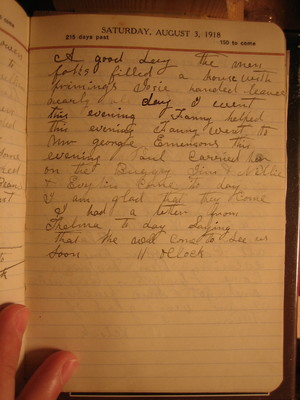 SATURDAY, AUGUST 3, 1918
215 days past 150 to come
A good day the men
folks filled a house with
primings Dosie handed leaves
nearly all day I went
this evening Fanny helped
this evening Fanny went to
Mr George Emersons this
evening Paul carried her
on the Buggy Jim & Nellie
& Evylin Come to day
I am glad that they Come
I had a letter from
Thelma to day Saying
That she will Come to See us
Soon 11 oClock